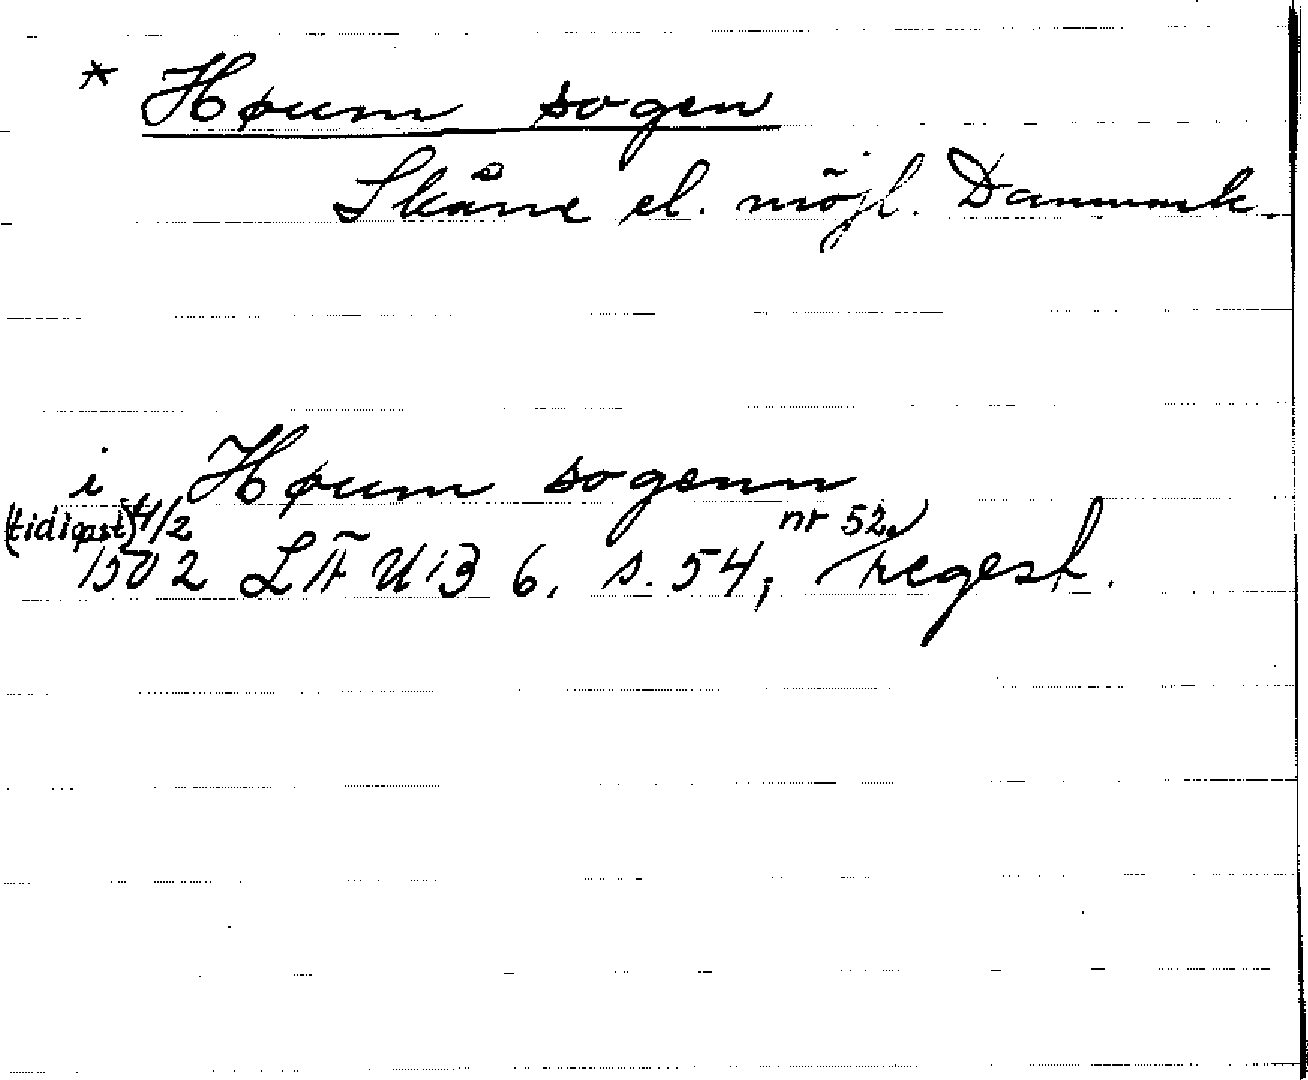 * Høum sogen
Skåne el. möjl. Danmark.
i Høum sogenn
(tidigast) 4/2 nr 52,
1502 LÄUB 6, s. 54, regest.